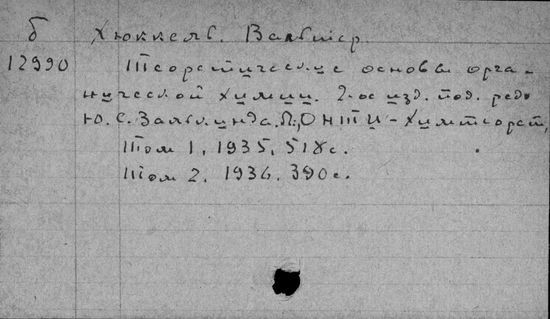 б Хюккель. Вальтер.
12990 Теоретические основы орга-
нической химии. 2-ое изд. под. ред.
Ю. С. Залькинда. Л., ОНТИ-Химтеорет,
Том 1, 1935, 518 с.
Том 2. 1936. 390 с.